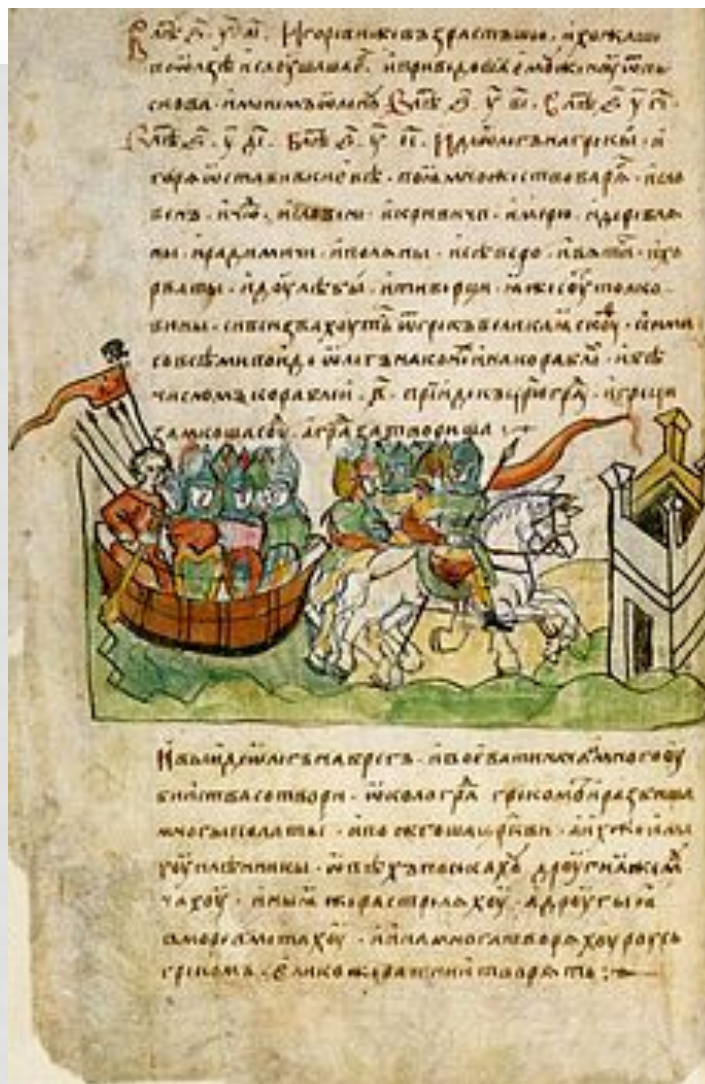 В лѣт҃ ҂ѕ҃ · у҃ · аі҃ · Игореви же възрастъшю · и хожаше
по ѡлзѣ и слоушаше · и приведоша емоу женоу ѿ пьс
скова · именемъ ѡленꙋ В лѣт҃ ҂ѕ҃ · у҃ ві҃ · В лѣт҃ ҂ѕ҃ у҃ гі҃ ·
В лѣт҃ ҂ѕ҃ · у҃ ді҃ · В лѣт҃ ҂ѕ҃ · у҃ еі҃ · Иде ѡлегъ на грекы · и
горѧ ѡставивъ києвѣ · поꙗ множество варѧ · и сло
венъ · и чю · и словени · и кривичи · и мерю · и деревлѧ
ны · и радимичи · и полѧны · и сѣверо · и вѧтичи · и хо
рваты · и доулѣбы · и тиверци · ꙗже соуⷮ толко
вины · си вси звахоуть ѿ грекъ великаꙗ скоуⷴ · сими
со всѣми поиде ѡлегъ на конеⷯ и на кораблѣ · и бѣ
числомъ кораблеи · в҃ · прїиде къ цр҃юграⷣ · и греци
замкоша соуⷣ · а граⷣ затвориша
И выиде ѡлегъ на брегъ · и воевати нача · и много оу
бииства сотвори · ѡколо граⷣ грекоⷨ · и разбиша
многы полаты · и пожгоша цр҃кви · а их же имѧ
хоу плѣнникы · ѡвѣхъ посѣкахоу дроугиꙗ же моу
чахоу · иныꙗ же растрелѧхоу · а дроугыꙗ
в море вметахоу · и ина многа творѧхоу роусь
грекомъ · єлико же ратнии творѧть